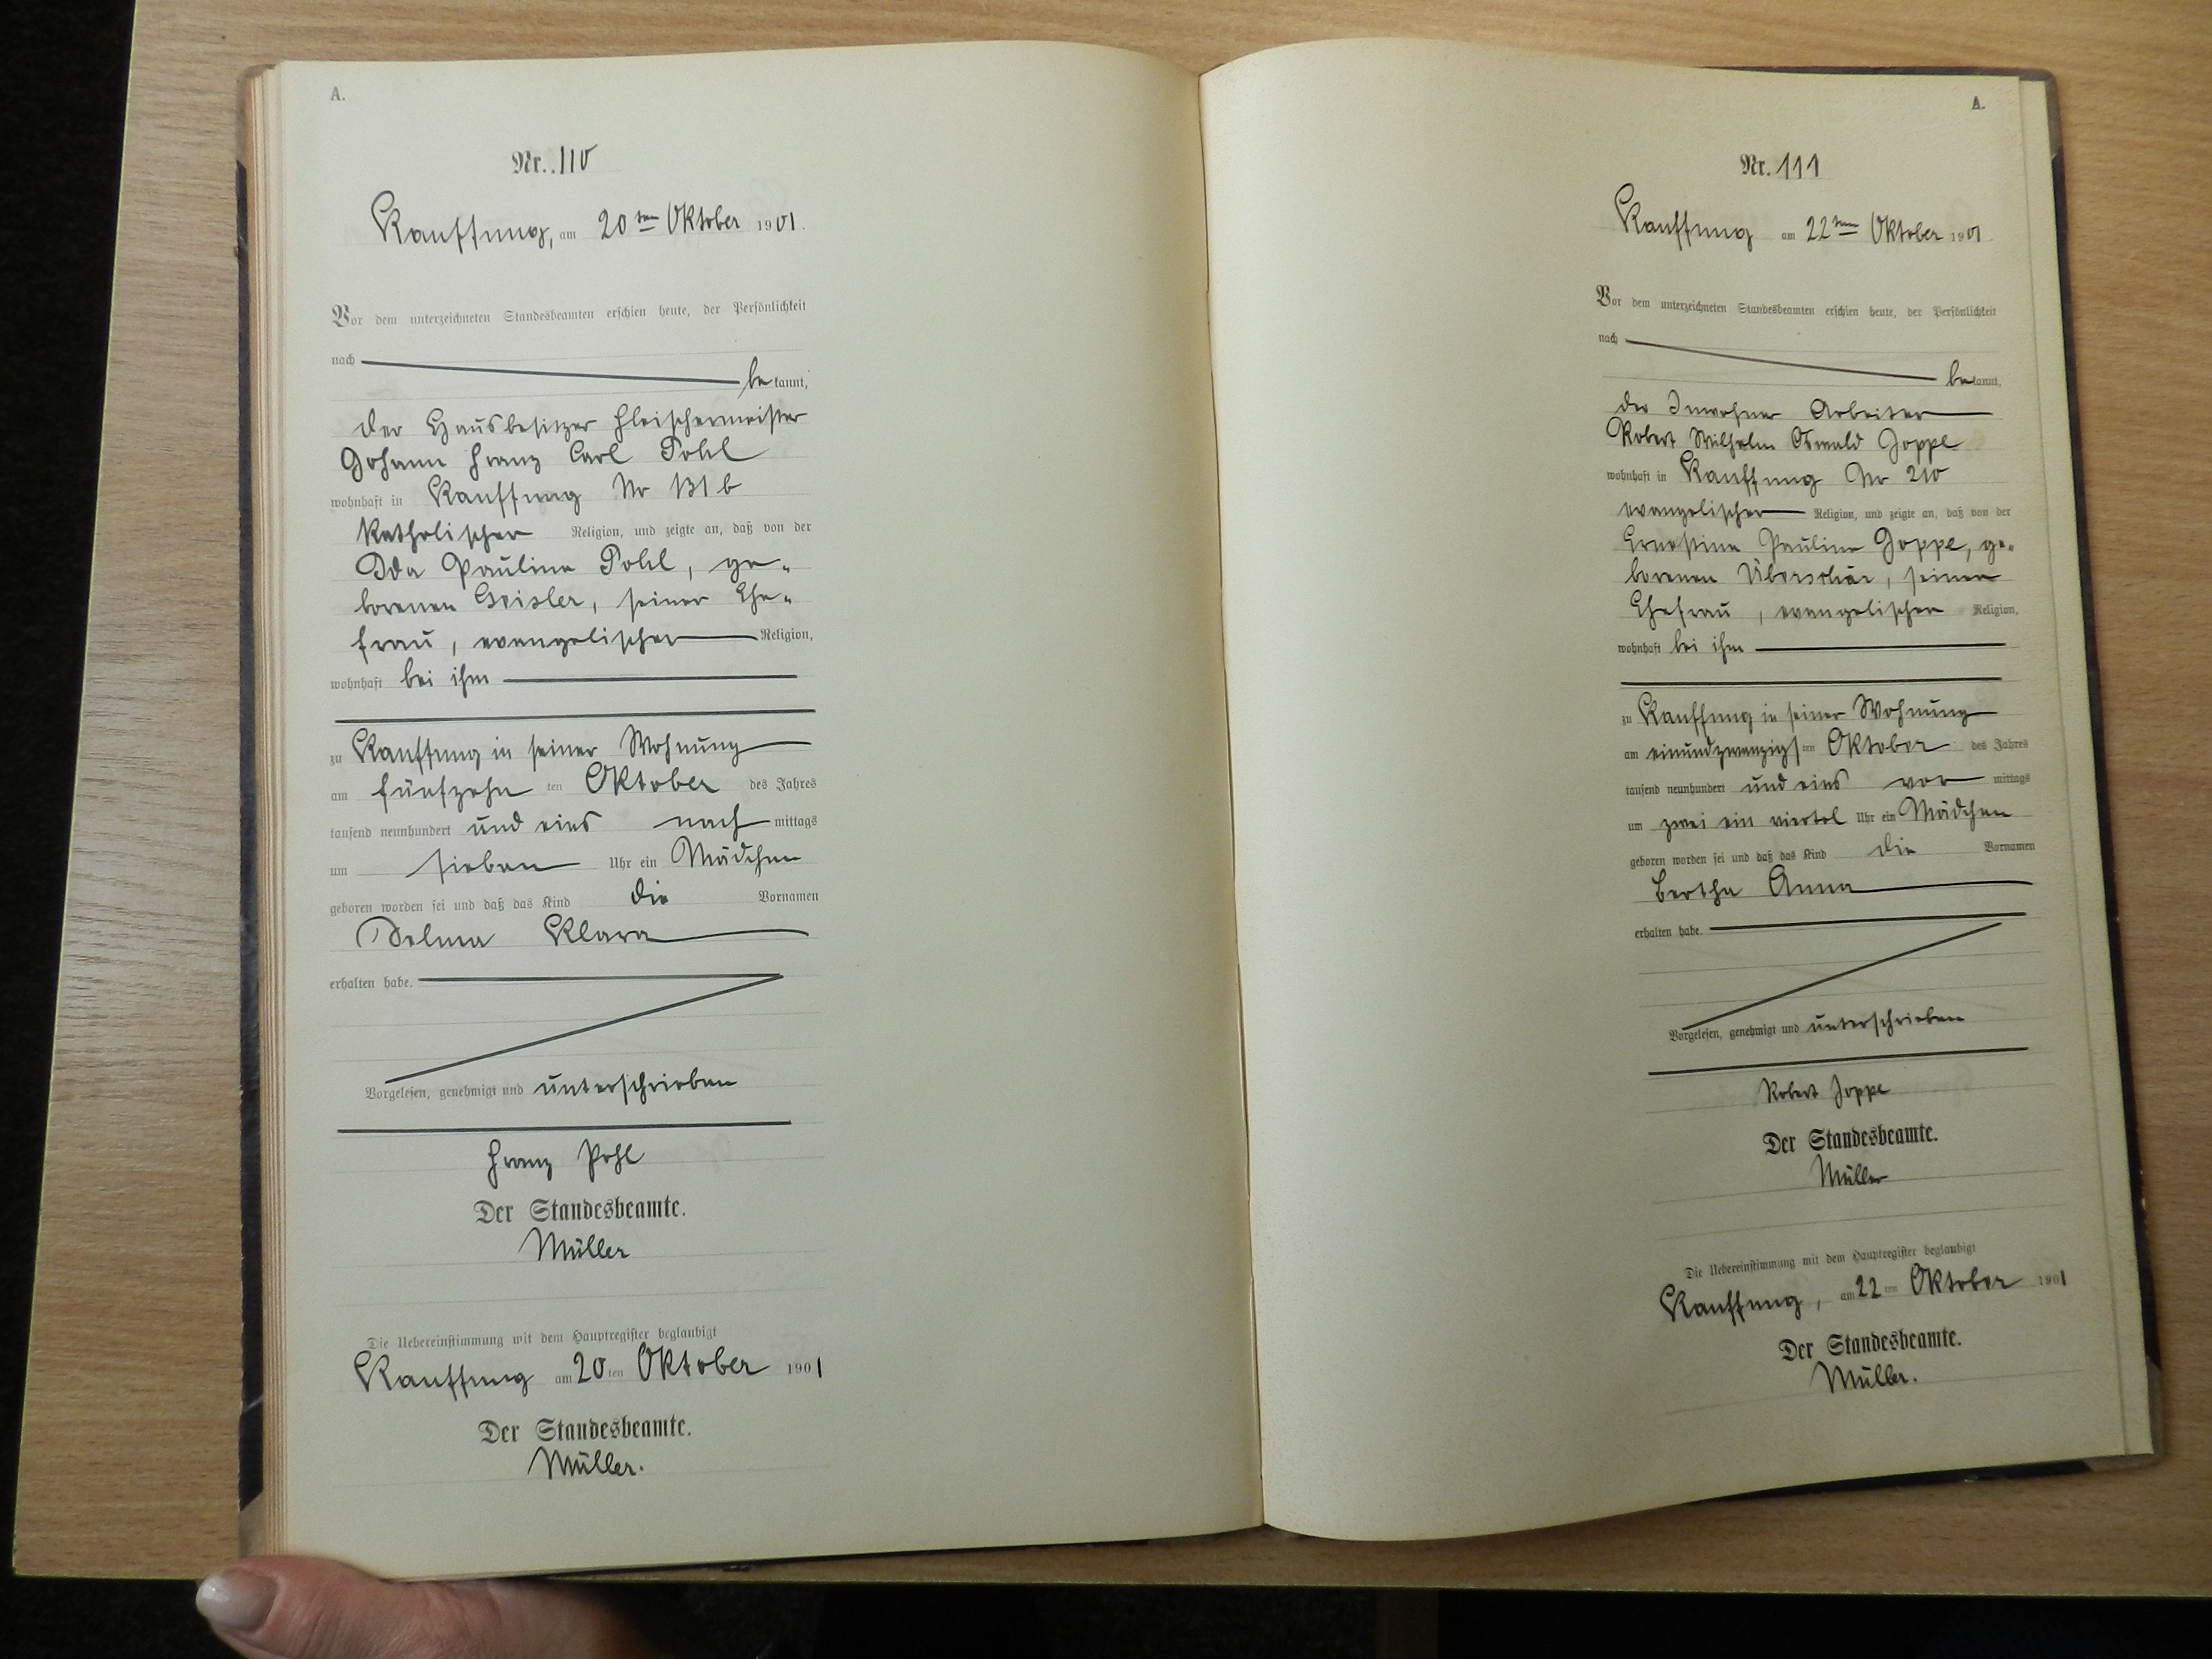 A.
Nr. 110
Kauffung, am 20ten Oktober 1901.
Vor dem unterzeichneten Standesbeamten erschien heute, der Persönlichkeit
nach
bekannt,
der Hausbesitzer Fleischermeister
Johann Franz Carl Pohl
wohnhaft in Kauffung Nr 131 b
katholischer Religion, und zeigte an, daß von der
Ida Pauline Pohl, ge-
borenen Geisler, seiner Ehe-
frau, evangelischer Religion,
wohnhaft bei ihm
zu Kauffung in seiner Wohnung
am fünfzehn ten Oktober des Jahres
tausend neunhundert und eins nach mittags
um sieben Uhr ein Mädchen
geboren worden sei und daß das Kind die Vornamen
Selma Klara
erhalten habe.
Vorgelesen, genehmigt und unterschrieben
Franz Pohl
Der Standesbeamte.
Müller
Die Uebereinstimmung mit dem Hauptregister beglaubigt
Kauffung am 20ten Oktober 1901
Der Standesbeamte.
Müller.
A.
Nr. 111
Kauffung am 22ten Oktober 1901
Vor dem unterzeichneten Standesbeamten erschien heute, der Persönlichkeit
nach
bekannt,
der Inwohner Arbeiter
Robert Wilhelm Oswald Joppe
wohnhaft in Kauffung Nr 210
evangelischer Religion, und zeigte an, daß von der
Ernestine Pauline Joppe, ge-
borenen Überschär, seiner
Ehefrau, evangelischer Religion,
wohnhaft bei ihm
zu Kauffung in seiner Wohnung
am einundzwanzigsten Oktober des Jahres
tausend neunhundert und eins vor mittags
um zwei ein viertel Uhr ein Mädchen
geboren worden sei und daß das Kind die Vornamen
Bertha Anna
erhalten habe.
Vorgelesen, genehmigt und unterschrieben
Robert Joppe
Der Standesbeamte.
Müller
Die Uebereinstimmung mit dem Hauptregister beglaubigt
Kauffung, am 22ten Oktober 1901
Der Standesbeamte.
Müller.